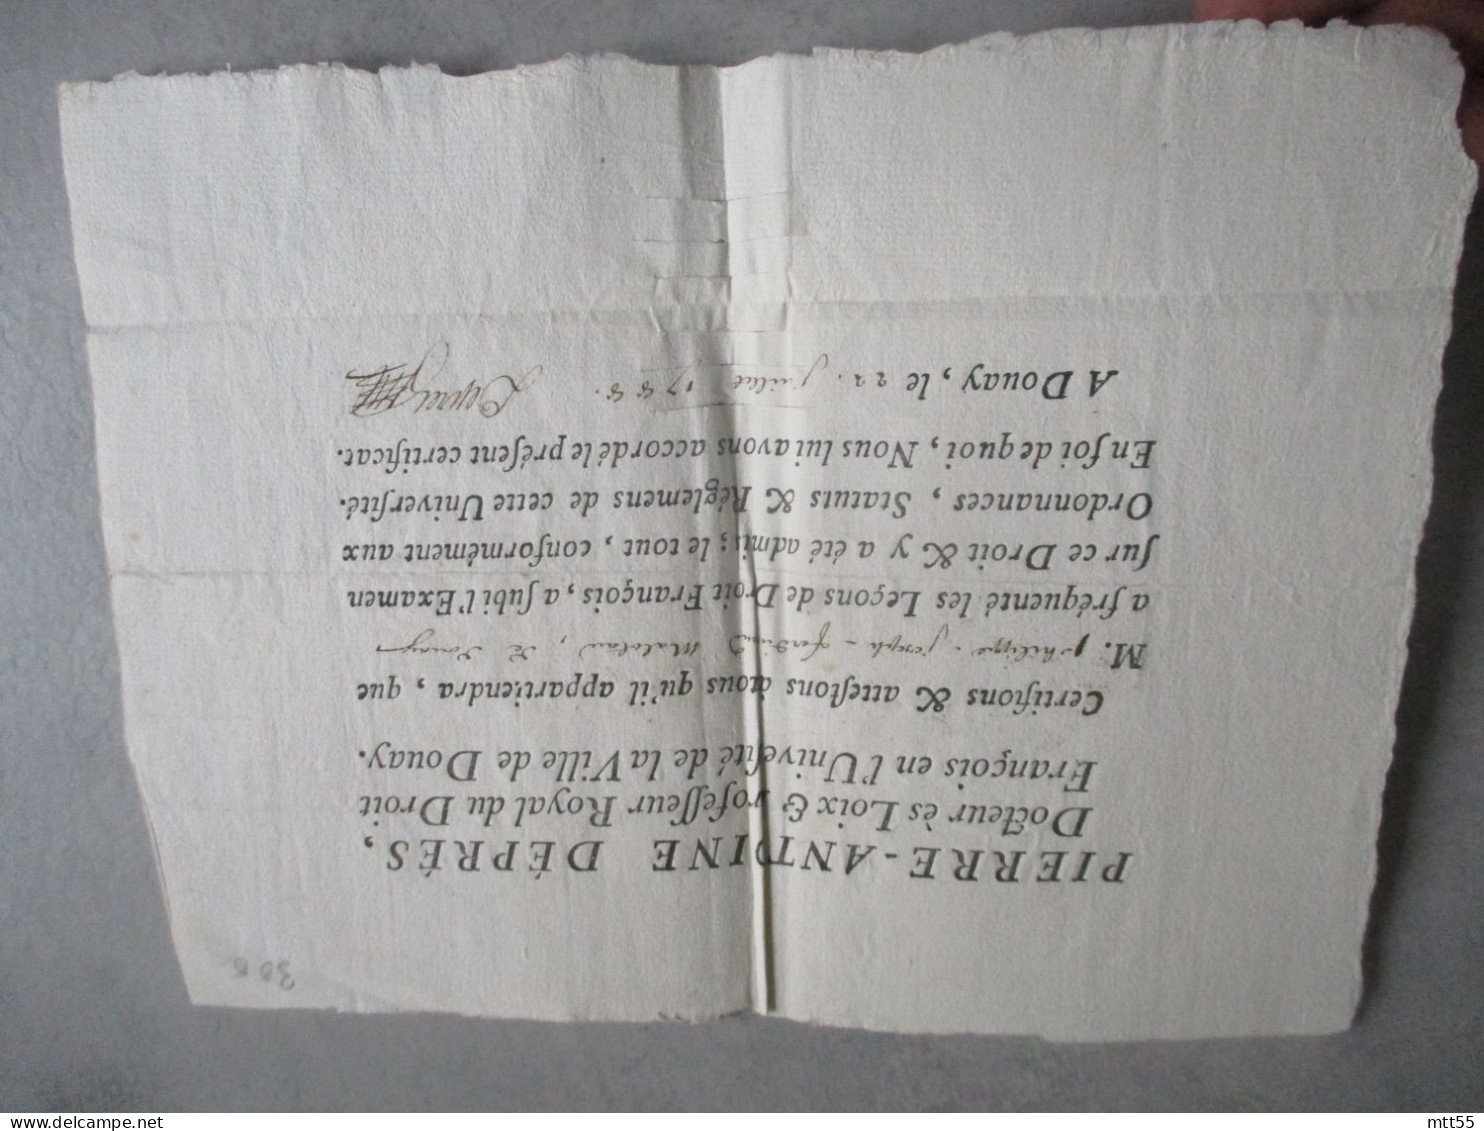 PIERRE-ANTOINE DÉPRÉS,
Docteur ès Loix & Professeur Royal du Droit
François en l'Univesité de la Ville de Douay.
Certifions & attestons à tous qu'il appartiendra, que
M. philippe-joseph-ferdinand , De Douay
a fréquenté les Leçons de Droit François, a subi l'Examen
sur ce Droit & y a été admis; le tout, conformément aux
Ordonnances, Statuts & Réglemens de cette Université.
En foi de quoi, Nous lui avons accordé le présent certificat.
A Douay, le 22. juillet 1788. Déprés
30
delcampe.net
mtt55